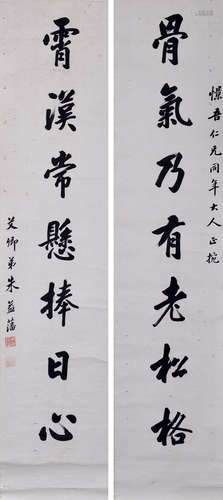 憬吾仁兄同年大人正捥
骨氣乃有老松格
霄漢常懸捧日心
艾卿弟朱益藩